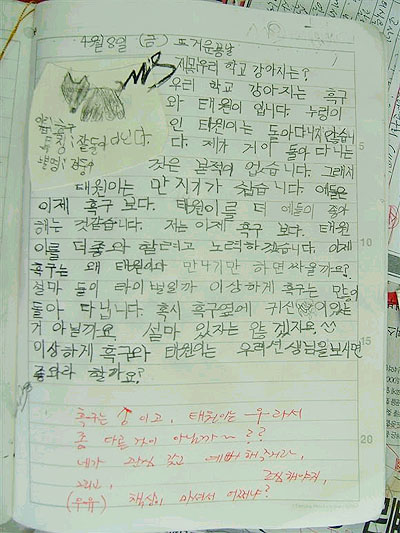 4월 8일 (금) 뜨거운 날
우리 학교 강아지는?
우리 학교 강아지는 흑구
와 태원이 입니다. 누렁이
인 태원이는 돌아다니지 않습니
다. 제가 거이 돌아 다니는
것은 본적이 없습니다. 그래서
태원이는 만지기가 쉽습니다. 애들은
이제 흑구 보다. 태원이를 더
해는 것같습니다. 저는 이제 흑구 보다. 태원
이를 더좋와 할려고 노력하겠습니다. 이제
흑구는 왜 태원이와 만나기만 하면 싸울까요?
설마 둘이 라이벌일까 이상하게 흑구는 많이
돌아 다닙니다. 혹시 흑구옆에 귀신이 있는
거 아닐까요. 설마 있자는 않겠지요.
이상하게 흑구와 태원이는 우리선생님을 보시면
좋와라 할까요?
이름: 흑구
특징: 잘돌아다닌다.
별명:
5
10
15
20
흑구는 숫이고, 태원이는 우라서
좀 다른 것이 아닐까~??
네가 관심 갖고 예뻐해주거라,
그리고, 조심해야지,
(우유) 책상이 마셔서 어쩌냐?